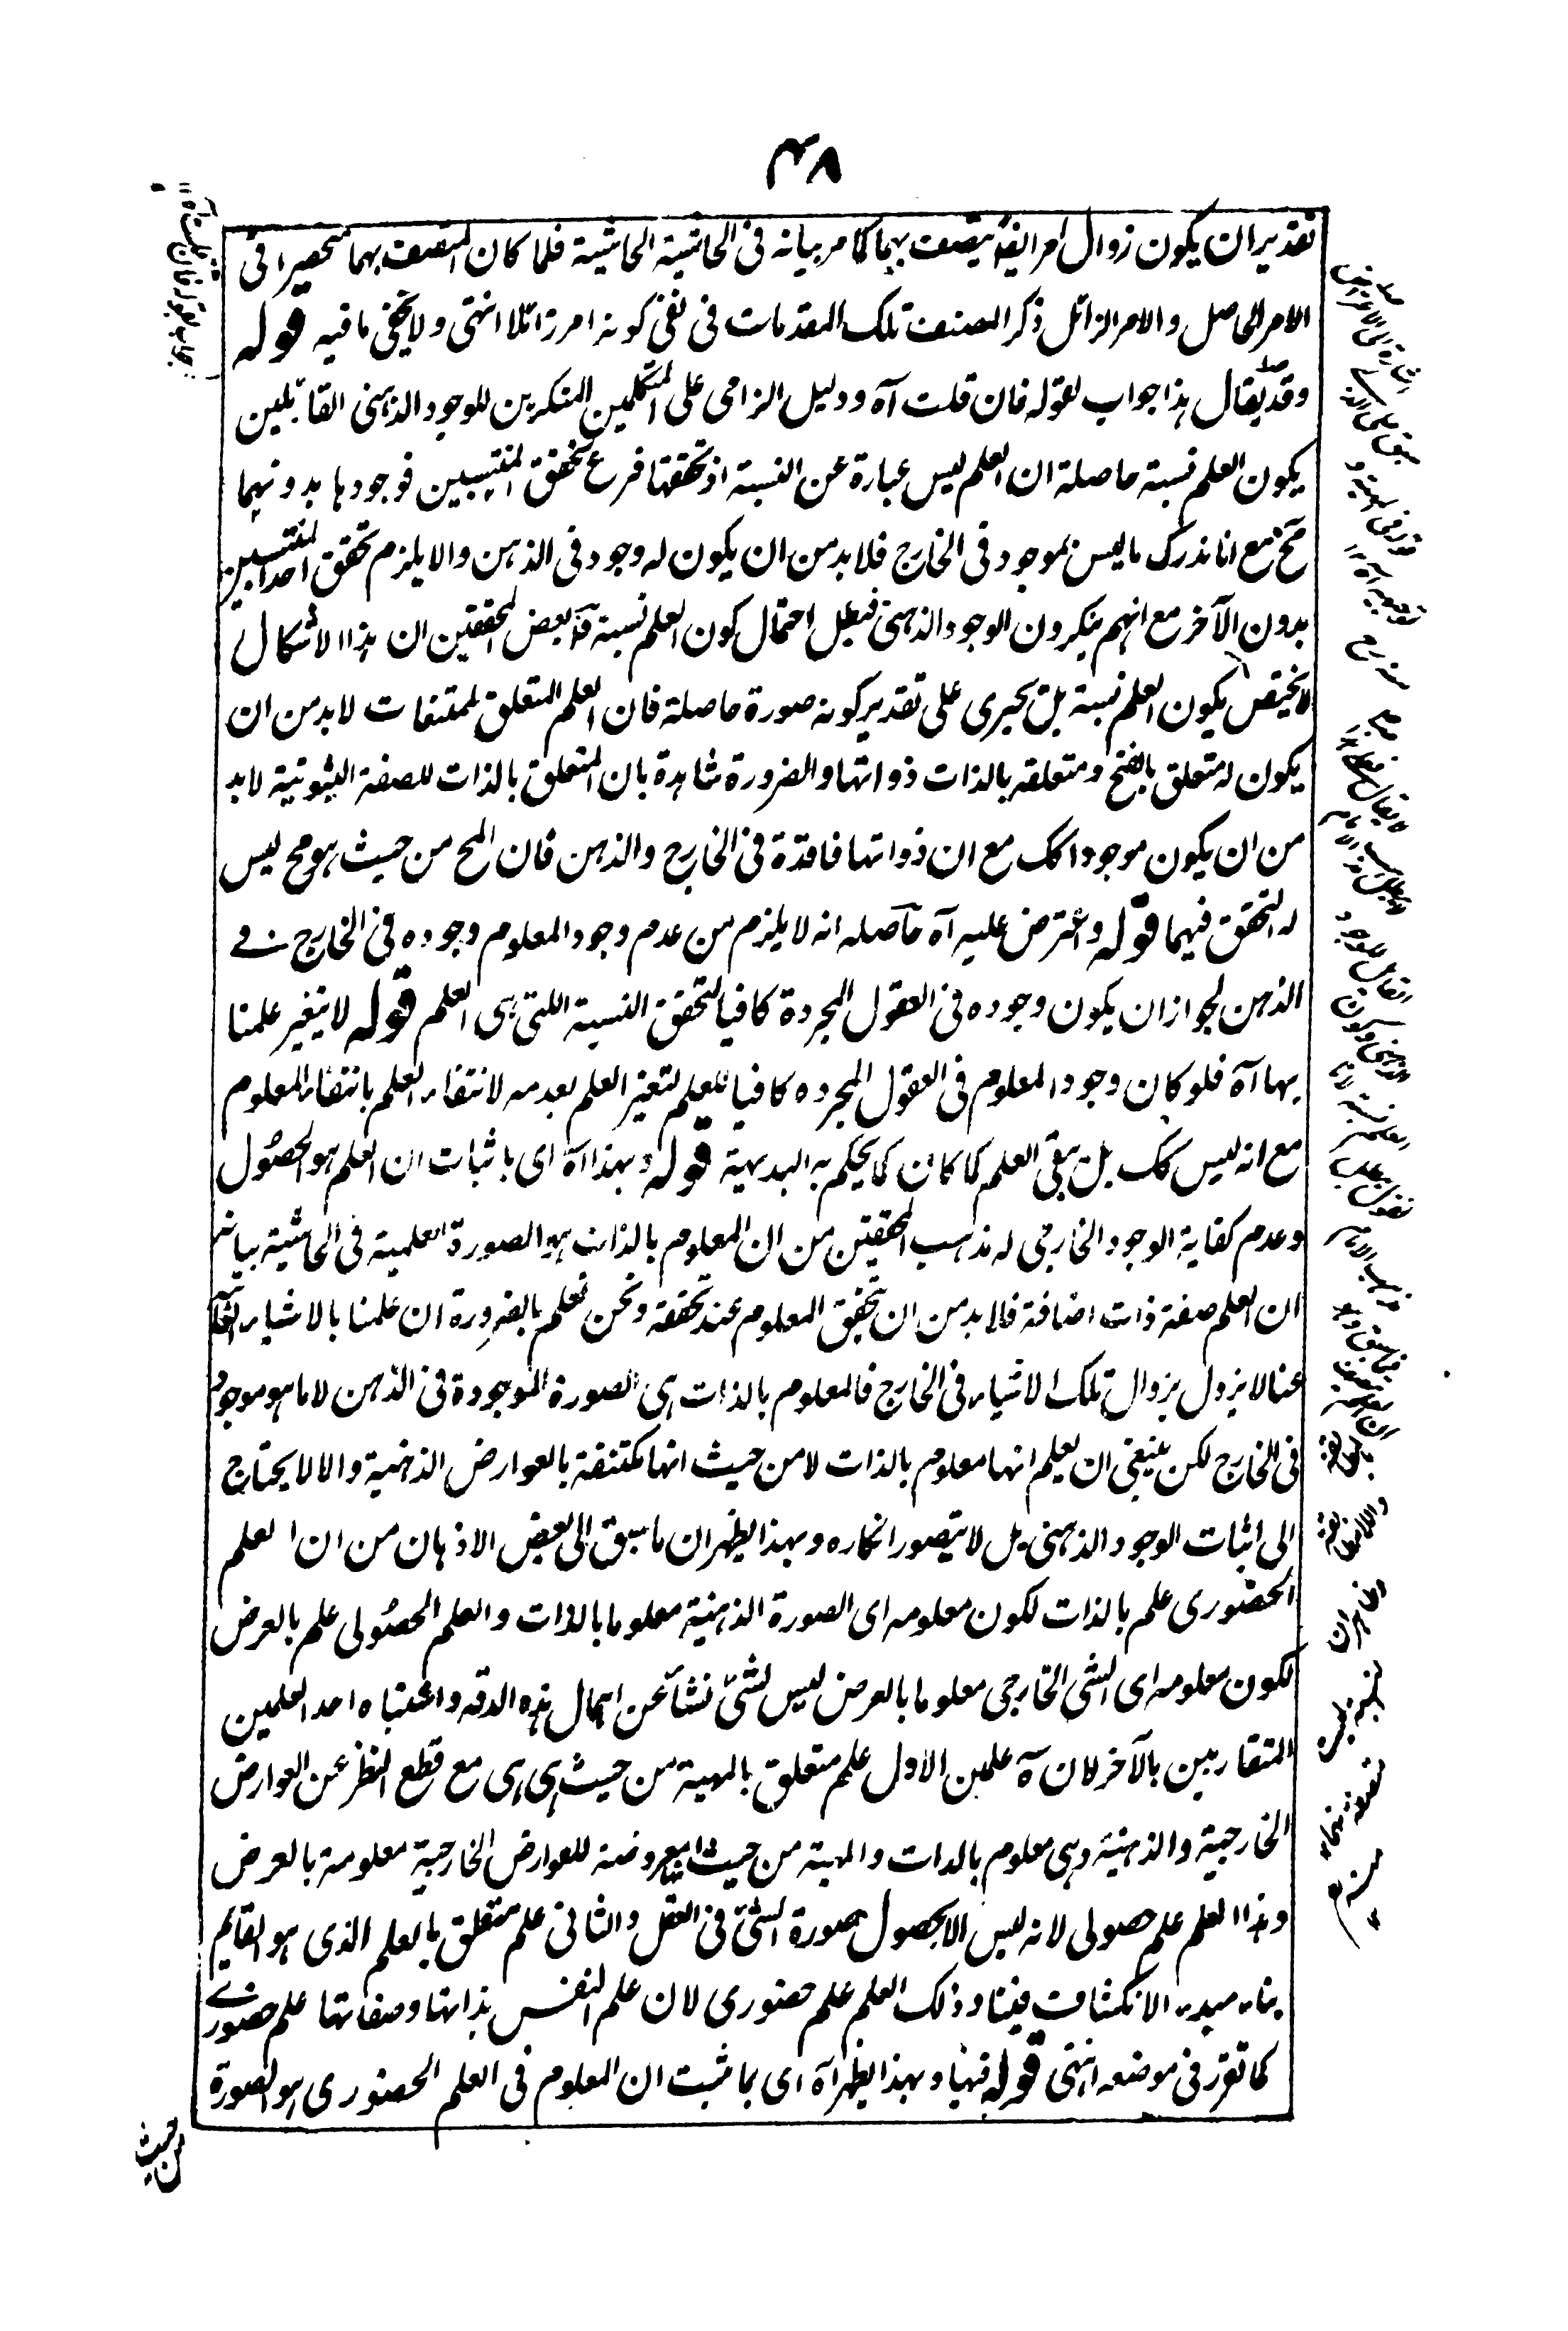 ۴۸
تقدير ان يكون زوال امر ايضا يتصف بهما كما مر بيانه فى الحاشية الحاشية فلما كان المتصف بهما منحصرا فى
الامر الحاصل والامر الزائل ذكر المصنف تلك المقدمات فى نفى كونه امر زائلا انتهى ولا يخفى ما فيه قوله
وقد يقال هذا جواب لقوله فان قلت آه ودليل الزامى على المتكلمين المنكرين للوجود الذهنى القائلين
بكون العلم نسبة حاصلة ان العلم ليس عبارة عن النسبة اذ تحققها فرع تحقق المنتسبين فوجودها بدونهما
مح مع انا ندرك ما ليس بموجود فى الخارج فلا بد من ان يكون له وجود فى الذهن والا يلزم تحقق احد المنتسبين
بدون الآخر مع انهم ينكرون الوجود الذهنى فبطل احتمال كون العلم نسبة قال بعض المحققين ان هذا الاشكال
لا يختص بكون العلم نسبة بل يجرى على تقدير كونه صورة حاصلة فان العلم المتعلق بالممتنعات لا بد من ان
يكون له متعلق بالفتح ومتعلقه بالذات ذواتها والضرورة شاهدة بان المتعلق بالذات للصفة الثبوتية لا بد
من ان يكون موجودا كك مع ان ذواتها فاقدة فى الخارج والذهن فان المح من حيث هو مح ليس
له التحقق فيهما قوله واعترض عليه آه حاصله انه لا يلزم من عدم وجود المعلوم وجوده فى الخارج فى
الذهن لجواز ان يكون وجوده فى العقول المجردة كافيا لتحقق النسبة اللتى هى العلم قوله لا يتغير علمنا
بها آه فلو كان وجود المعلوم فى العقول المجرده كافيا للعلم لتغير العلم بعدمه لانتفاء العلم بانتفاء المعلوم
مع انه ليس كك بل يبقى العلم كما كان كما يحكم به البديهية قوله وبهذا آه اى باثبات ان العلم هو الحصول
وعدم كفاية الوجود الخارجى له مذهب المحققين من ان المعلوم بالذات هو الصورة العلمية فى الحاشية بيانه
ان العلم صفة ذات اضافة فلا بد من ان تحقق المعلوم عند تحققه ونحن نعلم بالضرورة ان علمنا بالاشياء الغائبة
عنا لا يزول بزوال تلك الاشياء فى الخارج فالمعلوم بالذات هى الصورة الموجودة فى الذهن لا ما هو موجود
فى الخارج لكن ينبغى ان يعلم انها معلوم بالذات لا من حيث انها مكتنفة بالعوارض الذهنية والا لا يحتاج
الى اثبات الوجود الذهنى بل لا يتصور انكاره وبهذا يظهر ان ما سبق الى بعض الاذهان من ان العلم
الحضورى علم بالذات لكون معلومه اى الصورة الذهنية معلوما بالذات والعلم الحصولى علم بالعرض
لكون معلومه اى الشى الخارجى معلوما بالعرض ليس بشئ نشأ عن اهمال هذه الدقه واشتباه احد العلمين
المتقاربين بالآخر لان آه علمين الاول علم متعلق بالمهية من حيث هى هى مع قطع النظر عن العوارض
الخارجية والذهنية وهى معلوم بالذات والمهية من حيث انها معروضة للعوارض الخارجية معلومة بالعرض
وهذا العلم علم حصولى لانه ليس الا بحصول صورة الشئ فى العقل والثانى علم متعلق بالعلم الذى هو القايم
بنا ومبدء الانكشاف فينا وذلك العلم علم حضورى لان علم النفس بذاتها وصفاتها علم حضورى
كما تقرر فى موضعه انتهى قوله فيها وبهذا يظهر آه اى بما ثبت ان المعلوم فى العلم الحضورى هو الصورة
من حيث